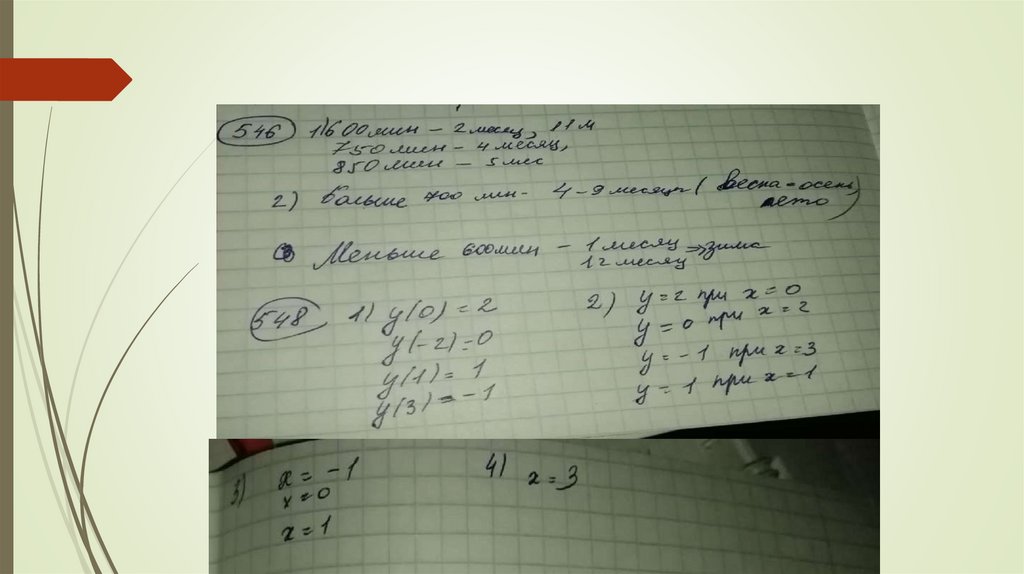 546 1) 600 мин – 2 месяц, 11 м
750 мин – 4 месяц,
850 мин – 5 мес
2) Больше 700 мин – 4 – 9 месяцы (весна – осень
лето)
3) Меньше 600 мин – 1 месяц → зима
12 месяц
548 1) y(0) = 2
y(-2) = 0
y(1) = 1
y(3) = -1
2) y = 2 при x = 0
y = 0 при x = 2
y = -1 при x = 3
y = 1 при x = 1
3) x = -1
x = 0
x = 1
4) x = 3